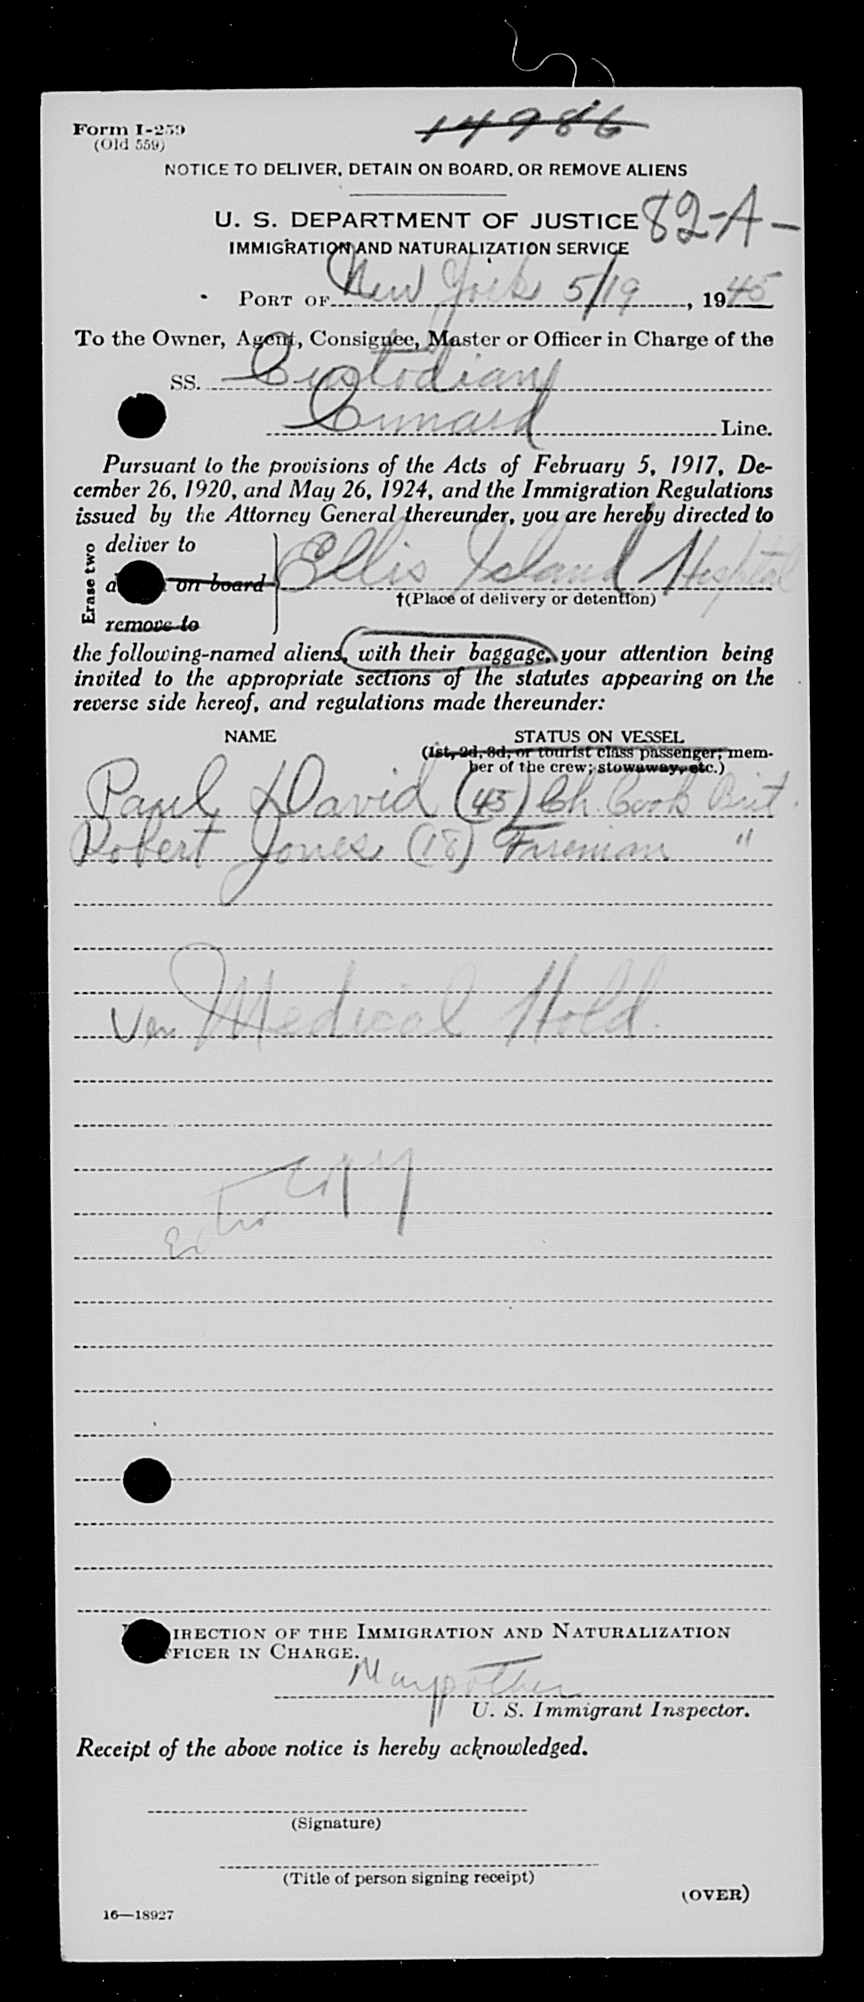 Form I-259
(Old 559)
14986
NOTICE TO DELIVER, DETAIN ON BOARD, OR REMOVE ALIENS
U. S. DEPARTMENT OF JUSTICE
82-A-
IMMIGRATION AND NATURALIZATION SERVICE
PORT OF New York 5/19, 1945
To the Owner, Agent, Consignee, Master or Officer in Charge of the
SS. Custodian
Cunard Line.
Pursuant to the provisions of the Acts of February 5, 1917, De-
cember 26, 1920, and May 26, 1924, and the Immigration Regulations
issued by the Attorney General thereunder, you are hereby directed to
Erase two
deliver to
on board
remove to
Ellis Island Hospital
†(Place of delivery or detention)
the following-named aliens, with their baggage, your attention being
invited to the appropriate sections of the statutes appearing on the
reverse side hereof, and regulations made thereunder:
NAME STATUS ON VESSEL
(1st, 2d, 3d, or tourist class passenger; mem-
ber of the crew; stowaway, etc.)
Paul David (45) Ch. Cook Brit.
Robert Jones (18) Fireman "
Ver Medical Hold.
Copy
IRECTION OF THE IMMIGRATION AND NATURALIZATION
FFICER IN CHARGE.
U. S. Immigrant Inspector.
Receipt of the above notice is hereby acknowledged.
(Signature)
(Title of person signing receipt)
(OVER)
16—18927